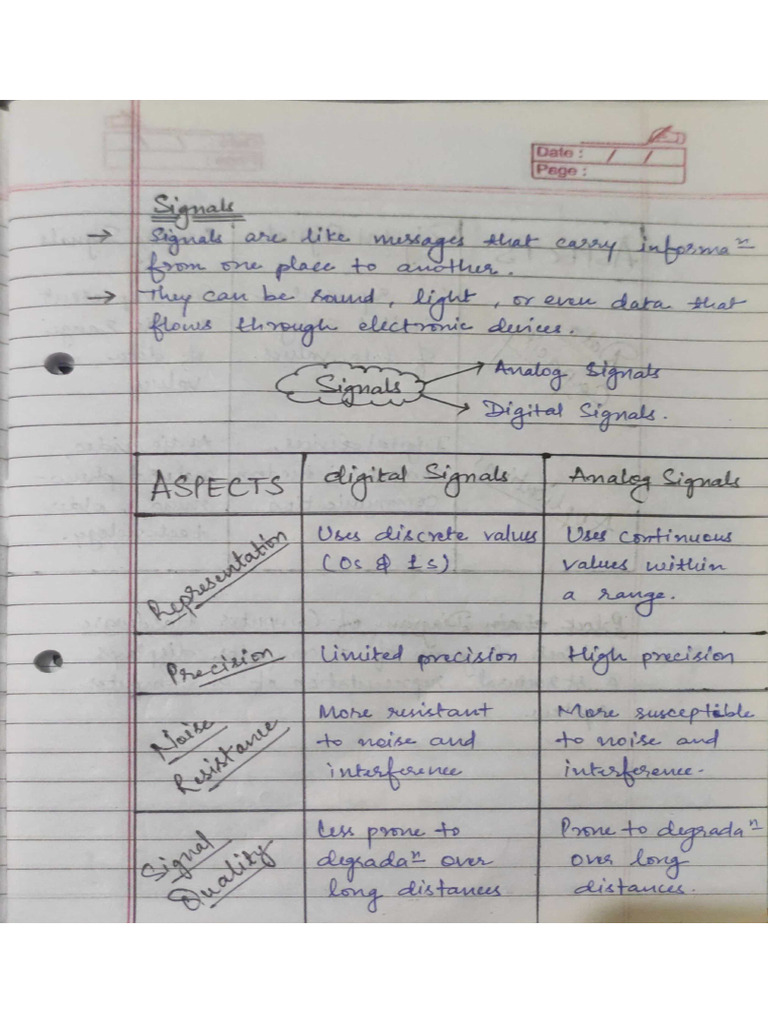 Date : / /
Page :
Signals
→ Signals are like messages that carry informaⁿ
from one place to another.
→ They can be sound, light, or even data that
flows through electronic devices.
Signals → Analog Signals
→ Digital Signals.
ASPECTS digital Signals Analog Signals
Representation Uses discrete values Uses continuous
(0s & 1s) values within
a range.
Precision Limited precision High precision
Noise More resistant More susceptible
Resistance to noise and to noise and
interference interference.
Signal Less prone to Prone to degradaⁿ
Quality degradaⁿ over over long
long distances distances.